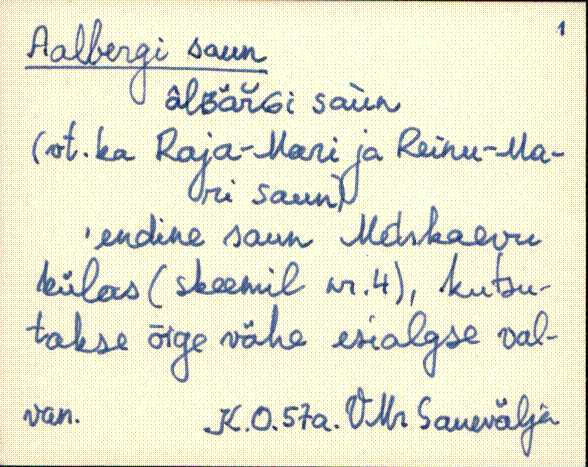 1
Aalbergi saun
âlʙärɢi saùn
(vt. ka Raja-Mari ja Reinu-Ma-
ri saun)
'endine saun Metskaevu
külas (skeemil nr. 4), kutsu-
takse õige vähe esialgse val-
van. K.O. 57a. VMr Sauevälja